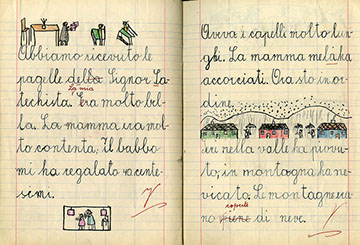 Abbiamo ricevuto le
pagelle della Signor La
La mia
techista. Era molto bel
la. La mamma era mol
to contenta. Il babbo
mi ha regalato 10 cente
simi.
Avevo i capelli molto lun
ghi. La mamma me li ha
accorciati. Ora sto in or
dine.
Ieri nella valle ha piovu
to, in montagna ha ne
vicato. Le montagne era
coperte
no piene di neve.